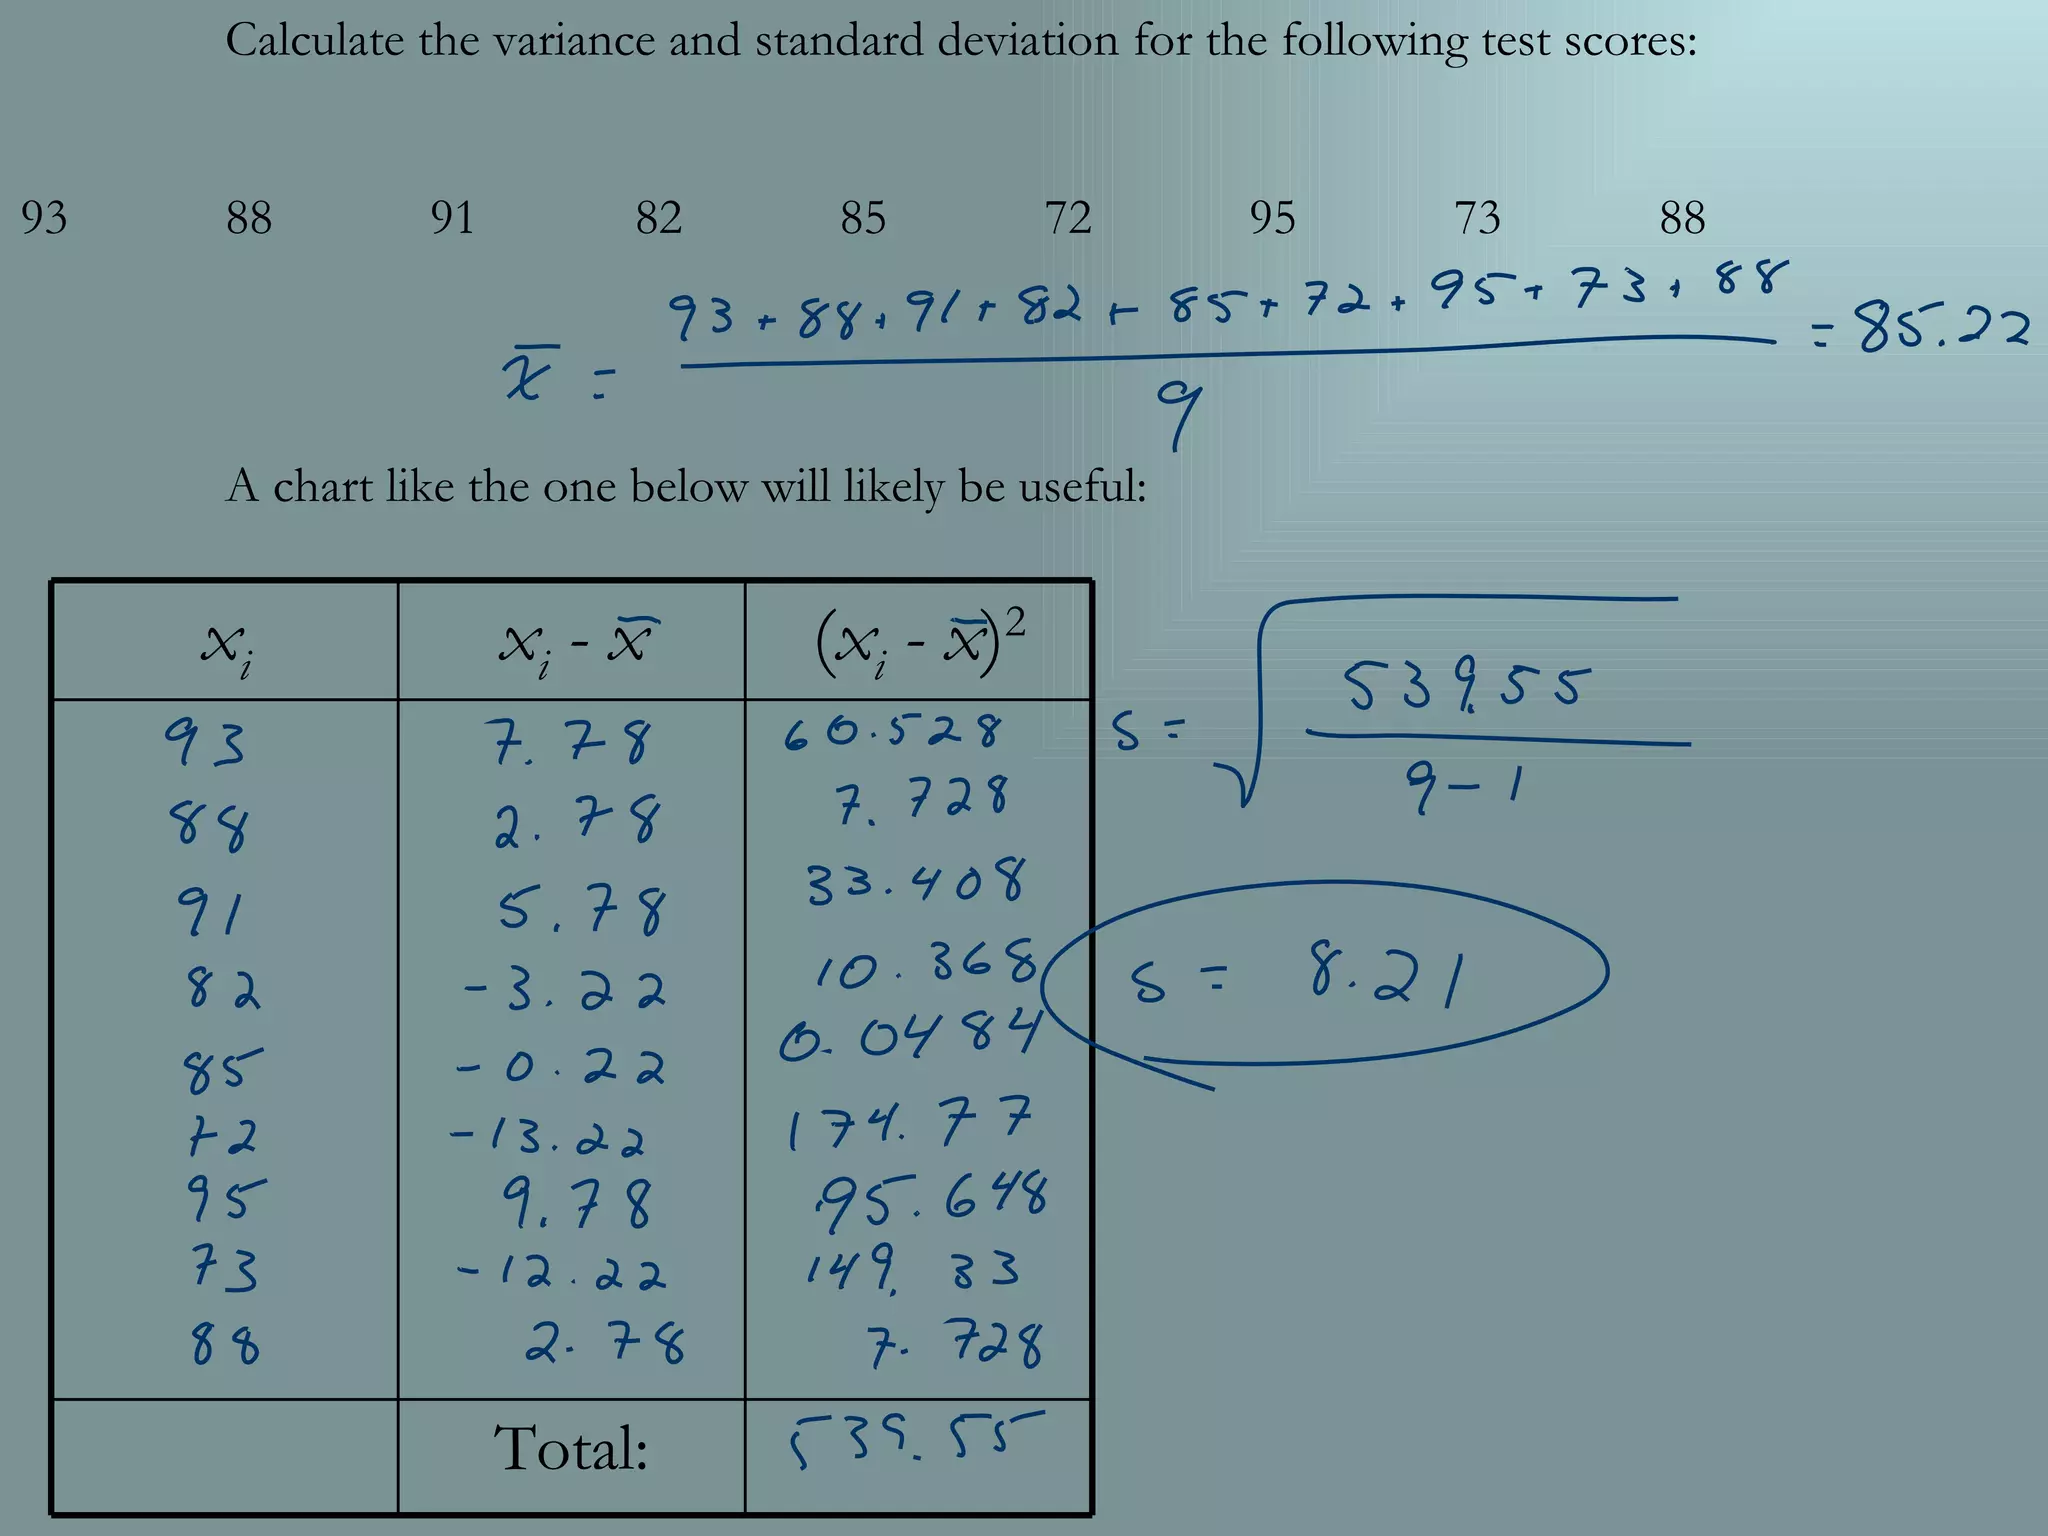 Calculate the variance and standard deviation for the following test scores:
93 88 91 82 85 72 95 73 88
93 + 88 + 91 + 82 + 85 + 72 + 95 + 73 + 88
x̄ = = 85.22
9
A chart like the one below will likely be useful:
xᵢ xᵢ - x̄ (xᵢ - x̄)²
93 7.78 60.528
88 2.78 7.728
91 5.78 33.408
82 -3.22 10.368
85 -0.22 0.0484
72 -13.22 174.77
95 9.78 95.648
73 -12.22 149.33
88 2.78 7.728
Total: 539.55
539.55
s = √
9 - 1
s = 8.21